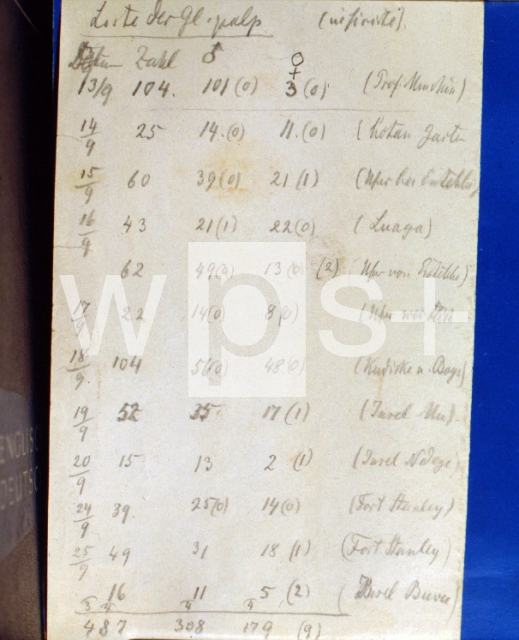 Liste der Gl. palp (infizierte).
Datum Zahl ♂ ♀
13/9 104. 101 (0) 3 (0) (Prof. Minchin)
14/9 25 14. (0) 11. (0) (Botan Garten
15/9 60 39 (0) 21 (1) (Ufer bei Entebbe)
16/9 43 21 (1) 22 (0) (Luaga)
62 49 13 (2) (Ufer von Entebbe)
17/9 22 14 (0) 8 (0) (Ufer von
18/9 104 48 (0)
19/9 52 35 17 (1) (Insel
20/9 15 13 2 (1) (Insel
24/9 39. 25 (0) 14 (0) (Fort Stanley)
25/9 49 31 18 (1) (Fort Stanley)
16 11 5 (2) (Insel
487 308 179 (9)
wps+
ENGLISC
DEUTSC